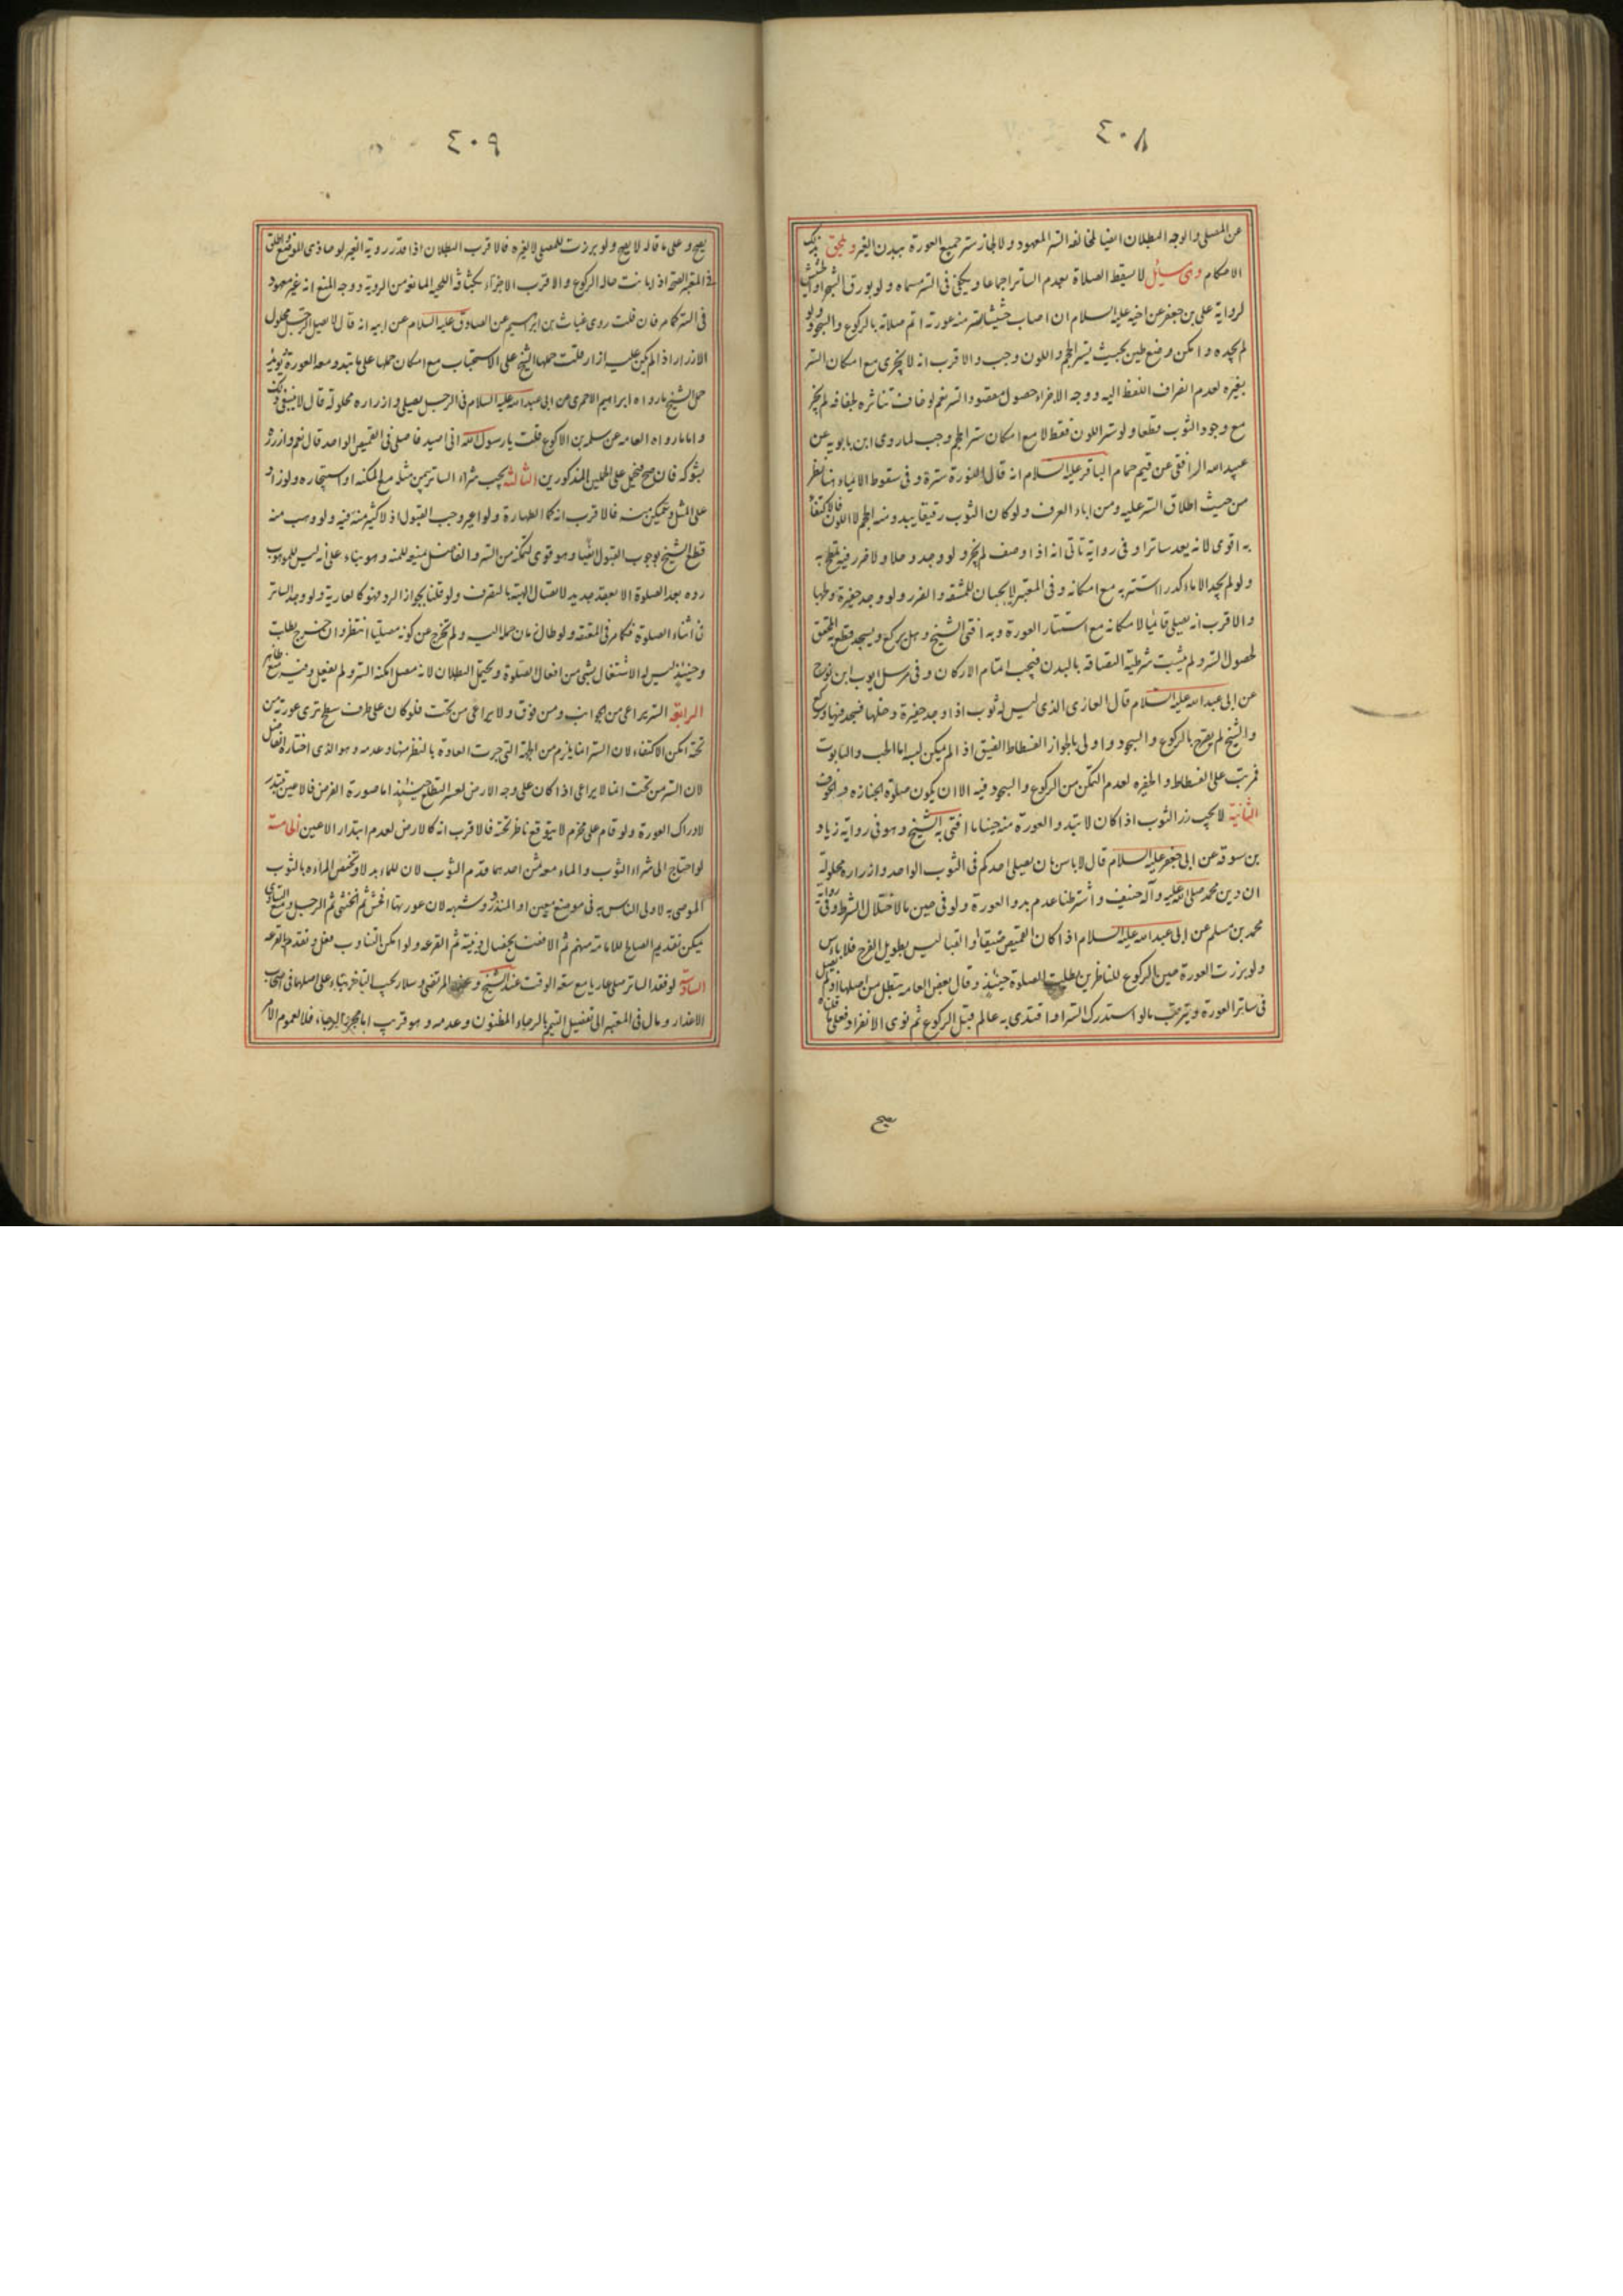 ٤٠٨
عن المصلي والوجه البطلان ايضا لمخالفه الستر المعهود ولا لجاز ستر جميع العورة ببدن الغير ويلحق بذلك
الاحكام وهي مسائل لا يسقط الصلاة بعدم الساتر اجماعا ويكفي في الستر مسماه ولو بورق الشجر او الحشيش
لرواية علي بن جعفر عن اخيه عليه السلام ان اصاب حشيشا يستر منه عورته اتم صلاته بالركوع والسجود ولو
لم يجده وامكن وضع طين بحيث يستر الحجم واللون وجب والاقرب انه لا يجزى مع امكان الستر
بغيره لعدم انصراف اللفظ اليه ووجه الاجزاء حصول مقصود الستر نعم لو خافت تناثره لجفافه لم يجز
مع وجود الثوب قطعا ولو ستر اللون فقط لا مع امكان ستر الحجم وجب لما روى ابن بابويه عن
عبيد الله الرافقى عن قيم حمام الباقر عليه السلام انه قال النورة سترة وفى سقوط الايماء هنا نظر
من حيث اطلاق الستر عليه ومن اباء العرف ولو كان الثوب رقيقا يبدو منه الحجم لا اللون فالاكتفاء
به اقوى لانه يعد ساترا وفى رواية تاتى انه اذا وصف لم يجز ولو وجد وحلا ولا ضرر فيه تلطخ به
ولو لم يجد الا ماء كدرا استتر به مع امكانه وفى المعتبر لا يجبان للمشقه والضرر ولو وجد حفيرة ولجها
والاقرب انه يصلى قائما لا مكانه مع استتار العورة وبه افتى الشيخ وهل يركع ويسجد قطع به المحقق
لحصول الستر ولم يثبت شرطية التصاقه بالبدن فيجب اتمام الاركان وفى مرسل ايوب ابن نوح
عن ابى عبد الله عليه السلام قال العارى الذى ليس له ثوب اذا وجد حفيرة دخلها فسجد فيها وركع
والشيخ لم يصرح بالركوع والسجود واولى بالجواز الفسطاط الضيق اذا لم يمكن لبسه اما الحب والتابوت
فمرتب على الفسطاط والحفره لعدم التمكن من الركوع والسجود فيه الا ان يكون صلوة الجنازه فيه الخوف
الثانية لا يجب زر الثوب اذا كان لا تبدو العورة منه حينا ما افتى به الشيخ وهو فى رواية زياد
بن سوقه عن ابى جعفر عليه السلام قال لا باس بان يصلى احدكم فى الثوب الواحد وازراره محلولة
ان دين محمد صلى الله عليه وآله حنيف واشترطنا عدم بدو العورة ولو فى حين ما لاختلال الشرط وفى رواية
محمد بن مسلم عن ابى عبد الله عليه السلام اذا كان القميص ضيقا او القبا ليس بطويل الفرج فلا باس
ولو برزت العورة حين الركوع للناظرين بطلت الصلوة حينئذ وقال بعض العامه يبطل من اصلها اذ لم يصل
فى ساتر العورة ويترتب ما لو استدرك الستر او اقتدى به عالم قبل الركوع ثم نوى الانفراد فعلى ما قلناه
يصح
٤٠٩
يصح وعلى ما قاله لا يصح ولو برزت للمصلى لا لغيره فالاقرب البطلان اذا قدر رويه الغير لو حاذى الموضع واطلق
فى المعتبر الصحة اذا بانت حاله الركوع والاقرب الاجتزاء بكثافة اللحيه المانعه من الرويه ووجه المنع انه غير معهود
فى الستر كما مر فان قلت روى غياث بن ابرهيم عن الصادق عليه السلام عن ابيه انه قال لا يصلى الرجل محلول
الازرار اذا لم يكن عليه ازار قلت حملها الشيخ على الاستحباب مع امكان حملها على ما تبدو معه العورة ويويده
حمل الشيخ ما رواه ابراهيم الاحمرى عن ابى عبد الله عليه السلام فى الرجل يصلى وازراره محلولة قال لا ينبغى ذلك
واما ما رواه العامه عن سلمه بن الاكوع قلت يا رسول الله انى اصيد فاصلى فى القميص الواحد قال نعم وازرره
بشوكه فان صح فيحمل على المحلين المذكورين الثالثه يجب شراء الساتر بثمن مثله مع المكنه او استيجاره ولو زاد
على المثل وتمكن منه فالاقرب انه كما الطهارة ولو اعير وجب القبول اذ لا كثير منة فيه ولو وهب منه
قطع الشيخ بوجوب القبول ايضا وهو قوى لتمكنه من الستر والفاضل يمنعه للمنه وهو بناء على انه ليس للموهوب
رده بعد الصلوة الا بعقد جديد لاتصال الهبة بالتصرف ولو قلنا بجواز الرد فهو كا لعارية ولو وجد الساتر
فى اثناء الصلوة فكما مر فى المعتقه ولو طال زمان حمله اليه ولم تخرج عن كونه مصليا انتظر وان خرج بطلت
وحينئذ ليس له الاشتغال بشى من افعال الصلوة ويحتمل البطلان لانه مصل امكنه الستر ولم يفعل وفيه منع ظاهر
الرابعة الستر يراعى من الجوانب ومن فوق ولا يراعى من تحت فلو كان على طرف سطح ترى عورته من
تحته امكن الاكتفاء لان الستر انما يلزم من الجهة التى جرت العادة بالنظر منها وعدمه وهو الذى اختاره الفاضل
لان الستر من تحت انما لا يراعى اذا كان على وجه الارض لعسر التطلع حينئذ اما صورة الفرض فالاعين تبتدر
لادراك العورة ولو قام على مخرم لا يتوقع ناظر تحته فالاقرب انه كالارض لعدم ابتدار الاعين الخامسة
لو احتاج الى شراء الثوب والماء معه ثمن احدهما قدم الثوب لان للماء بدلا وتختص المرأه بالثوب
الموصى به لاولى الناس به فى موضع معين او المنذور وشبهه لان عورتها افحش ثم الخنثى ثم الرجل ومع التساوى
يمكن تقديم الصالح للامامة منهم ثم الافضل بخصال دينية ثم القرعه ولو امكن التناوب فعل وتقدم القرعه
السادسة لو فقد الساتر صلى عاريا مع سعة الوقت عند الشيخ وعند المرتضى وسلار يجب التاخير بناء على اصلهما فى اصحاب
الاعذار ومال فى المعتبر الى تفصيل التيمم بالرجاء المظنون وعدمه وهو قريب اما مجرد الرجاء فلا لعموم الامر